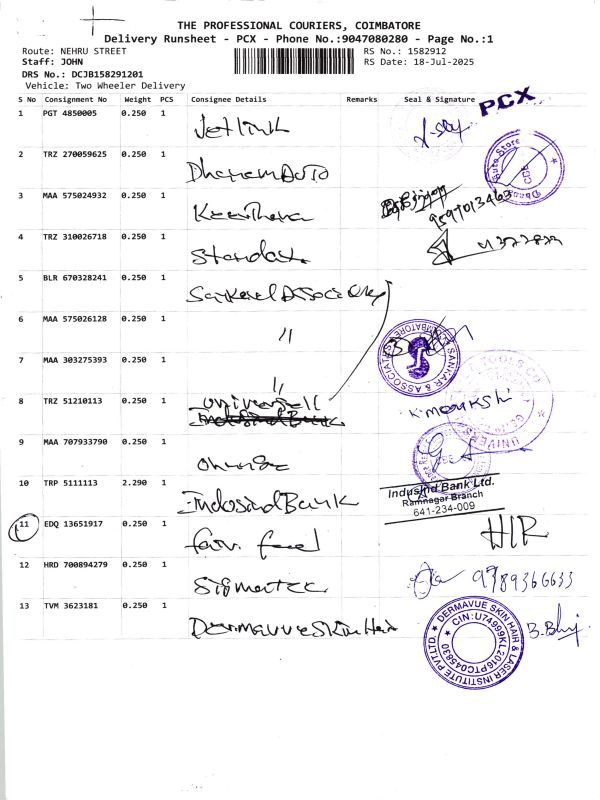 THE PROFESSIONAL COURIERS, COIMBATORE
Delivery Runsheet - PCX - Phone No.:9047080280 - Page No.:1
Route: NEHRU STREET
RS No.: 1582912
Staff: JOHN
RS Date: 18-Jul-2025
DRS No.: DCJB158291201
Vehicle: Two Wheeler Delivery
S No Consignment No Weight PCS Consignee Details Remarks Seal & Signature
PCX
1 PGT 4850005 0.250 1 Jetlink
2 TRZ 270059625 0.250 1 Dharam Auto
3 MAA 575024932 0.250 1 Keerthana 9597013463
4 TRZ 310026718 0.250 1 Standard
5 BLR 670328241 0.250 1 Sankar Associates
6 MAA 575026128 0.250 1 "
SANKAR & ASSOCIATES COIMBATORE
7 MAA 303275393 0.250 1 "
8 TRZ 51210113 0.250 1 Universal K. Meenakshi
9 MAA 707933790 0.250 1
10 TRP 5111113 2.290 1 Indusind Bank
Indusind Bank Ltd.
Ramnagar Branch
641-234-009
11 EDQ 13651917 0.250 1
12 HRD 700894279 0.250 1 Sigmatec 9789366633
13 TVM 3623181 0.250 1 Dermavue Skin Hair
DERMAVUE SKIN HAIR & LASER INSTITUTE PVT LTD.
CIN:U74999KL2016PTC045830